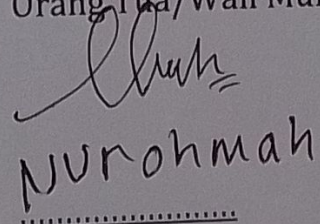 Orang Tua/Wali Mur
Nurohmah